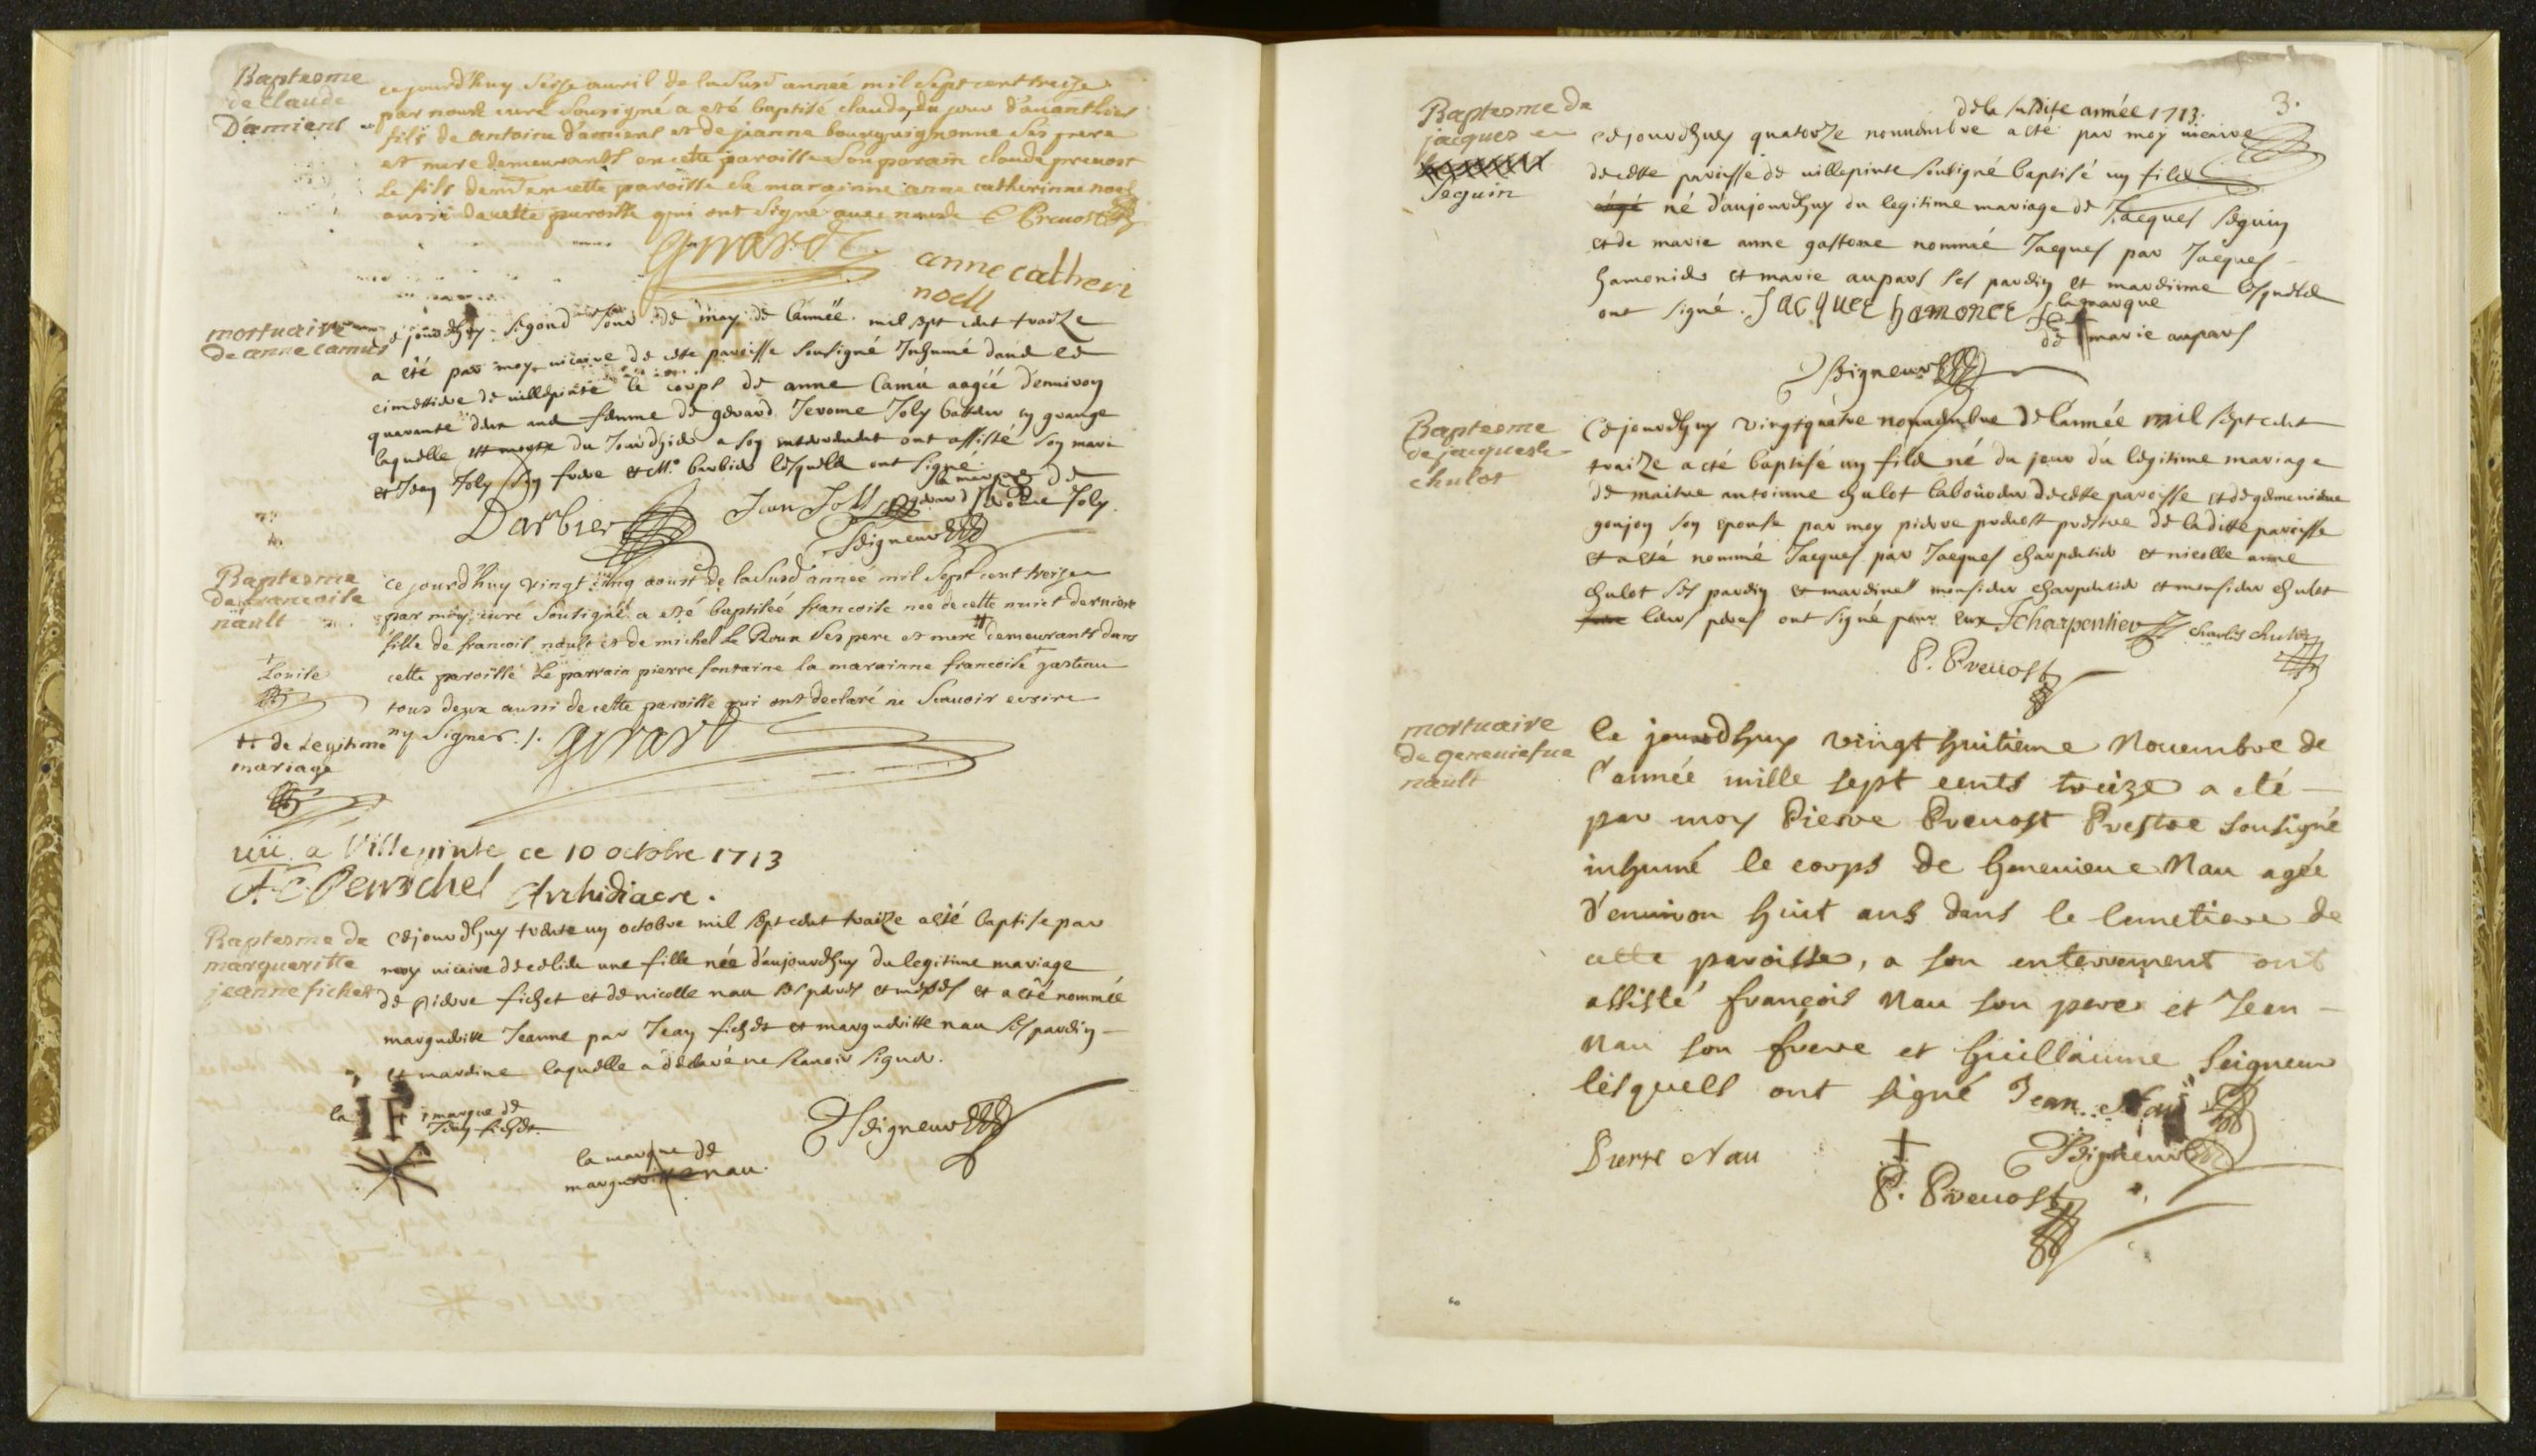 Baptesme
de Claude
D'amiens
cejourd'huy seise auril de la susd année mil sept cent treise
par nous curé sousigné a eté baptisé claude, du jour d'auanthier
fils de antoine d'amiens et de jeanne bourguignonne ses pere
et mere demeurants en cette paroisse son parain claude preuost
le fils demt en cette paroisse la marainne anne catherinne noel
aussi de cette paroisse qui ont signé auec nous C Preuost
Girard
anne catheri
noell
mortuaire
de anne camus
cejourdhuy segond jour de may de l'année mil sept cent traize
a été par moy vicaire de cete paroisse sousigné Inhumé dans le
cimettiere de villepinte le corps de anne Camu aagée d'enuiron
quarante deux ans femme de gerard Jerome Joly batteur en grange
laquelle est morte du Jourdhier a son enterrement ont assisté son mari
et Jean Joly son frere et Mr barbier lesquels ont signé
la marque de
gerard Jerome Joly
Barbier
Jean Joly
Seigneur
Baptesme
de francoise
nault
ce jourd'huy vingt cinq aoust de la Susd année mil Sept cent treize
par moy curé sousigné a eté baptiséé francoise née de cette nuict derniere
fille de francois nault et de michel le Roux ses pere et mere # demeurants dans
cette paroisse Le parrain pierre fontaine la marainne francoise + gasteau
tous deux aussi de cette paroisse qui ont declaré ne scauoir ecrire
ny signer ./. Girard
+
Louise
# de Legitime
mariage
uü a Villepinte ce 10 octobre 1713
Archidiacre.
Baptesme de
margueritte
jeanne fichet
cejourdhuy trente un octobre mil sept cent traize a eté baptisé par
moy vicaire une fille née d'aujourdhuy du legitime mariage
de pierre fichet et de nicolle nau ses peres et meres et a eté nommée
margueritte Jeanne par Jean fichet et margueritte nau ses parein
et mareine laquelle a declaré ne scauoir signer.
la IF marque de
Jean fichet
la marque de
margueritte nau.
Seigneur
3.
de la susdite année 1713.
Baptesme de
jacques
Seguin
cejourdhuy quatorze nouembre a eté par moy vicaire
de cette paroisse de villepinte sousigné baptisé un fils
né d'aujourdhuy du legitime mariage de Jacques seguin
et de marie anne gastone nommé Jacques par Jacques
hamonides et marie aupars ses parein et mareinne lesquels
ont signé. Jacques hamonce
la marque
de marie aupars
Seigneur
Baptesme
de jacques
chulot
Cejourdhuy vingtquatre nouuembre de l'année mil sept cent
traize a eté baptisé un fils né du jour du legitime mariage
de maitre antoinne chulot laboureur de cette paroisse et de geneuieue
goujon son epouse par moy pierre preuost prestre de la ditte paroisse
et a eté nommé Jacques par Jacques charpentier et nicolle anne
chulot ses parein et mareines monsieur charpentier et monsieur chulot
leurs peres ont signé pour eux J charpentier charles chulot
P. Preuost
mortuaire
de geneuiefue
nault
Ce jourdhuy vingt huitieme Nouembre de
l'année mille sept cents treize a eté
par moy Pierre Preuost Prestre sousigné
inhumé le corps de Geneuieue Nau agée
d'enuiron huit ans dans le cimetiere de
cette paroisse, a son enterrement ont
assisté françois Nau son pere et Jean
Nau son frere et Guillaume Seigneur
lesquels ont signé Jean Nau
Pierre Nau
Seigneur
P. Preuost